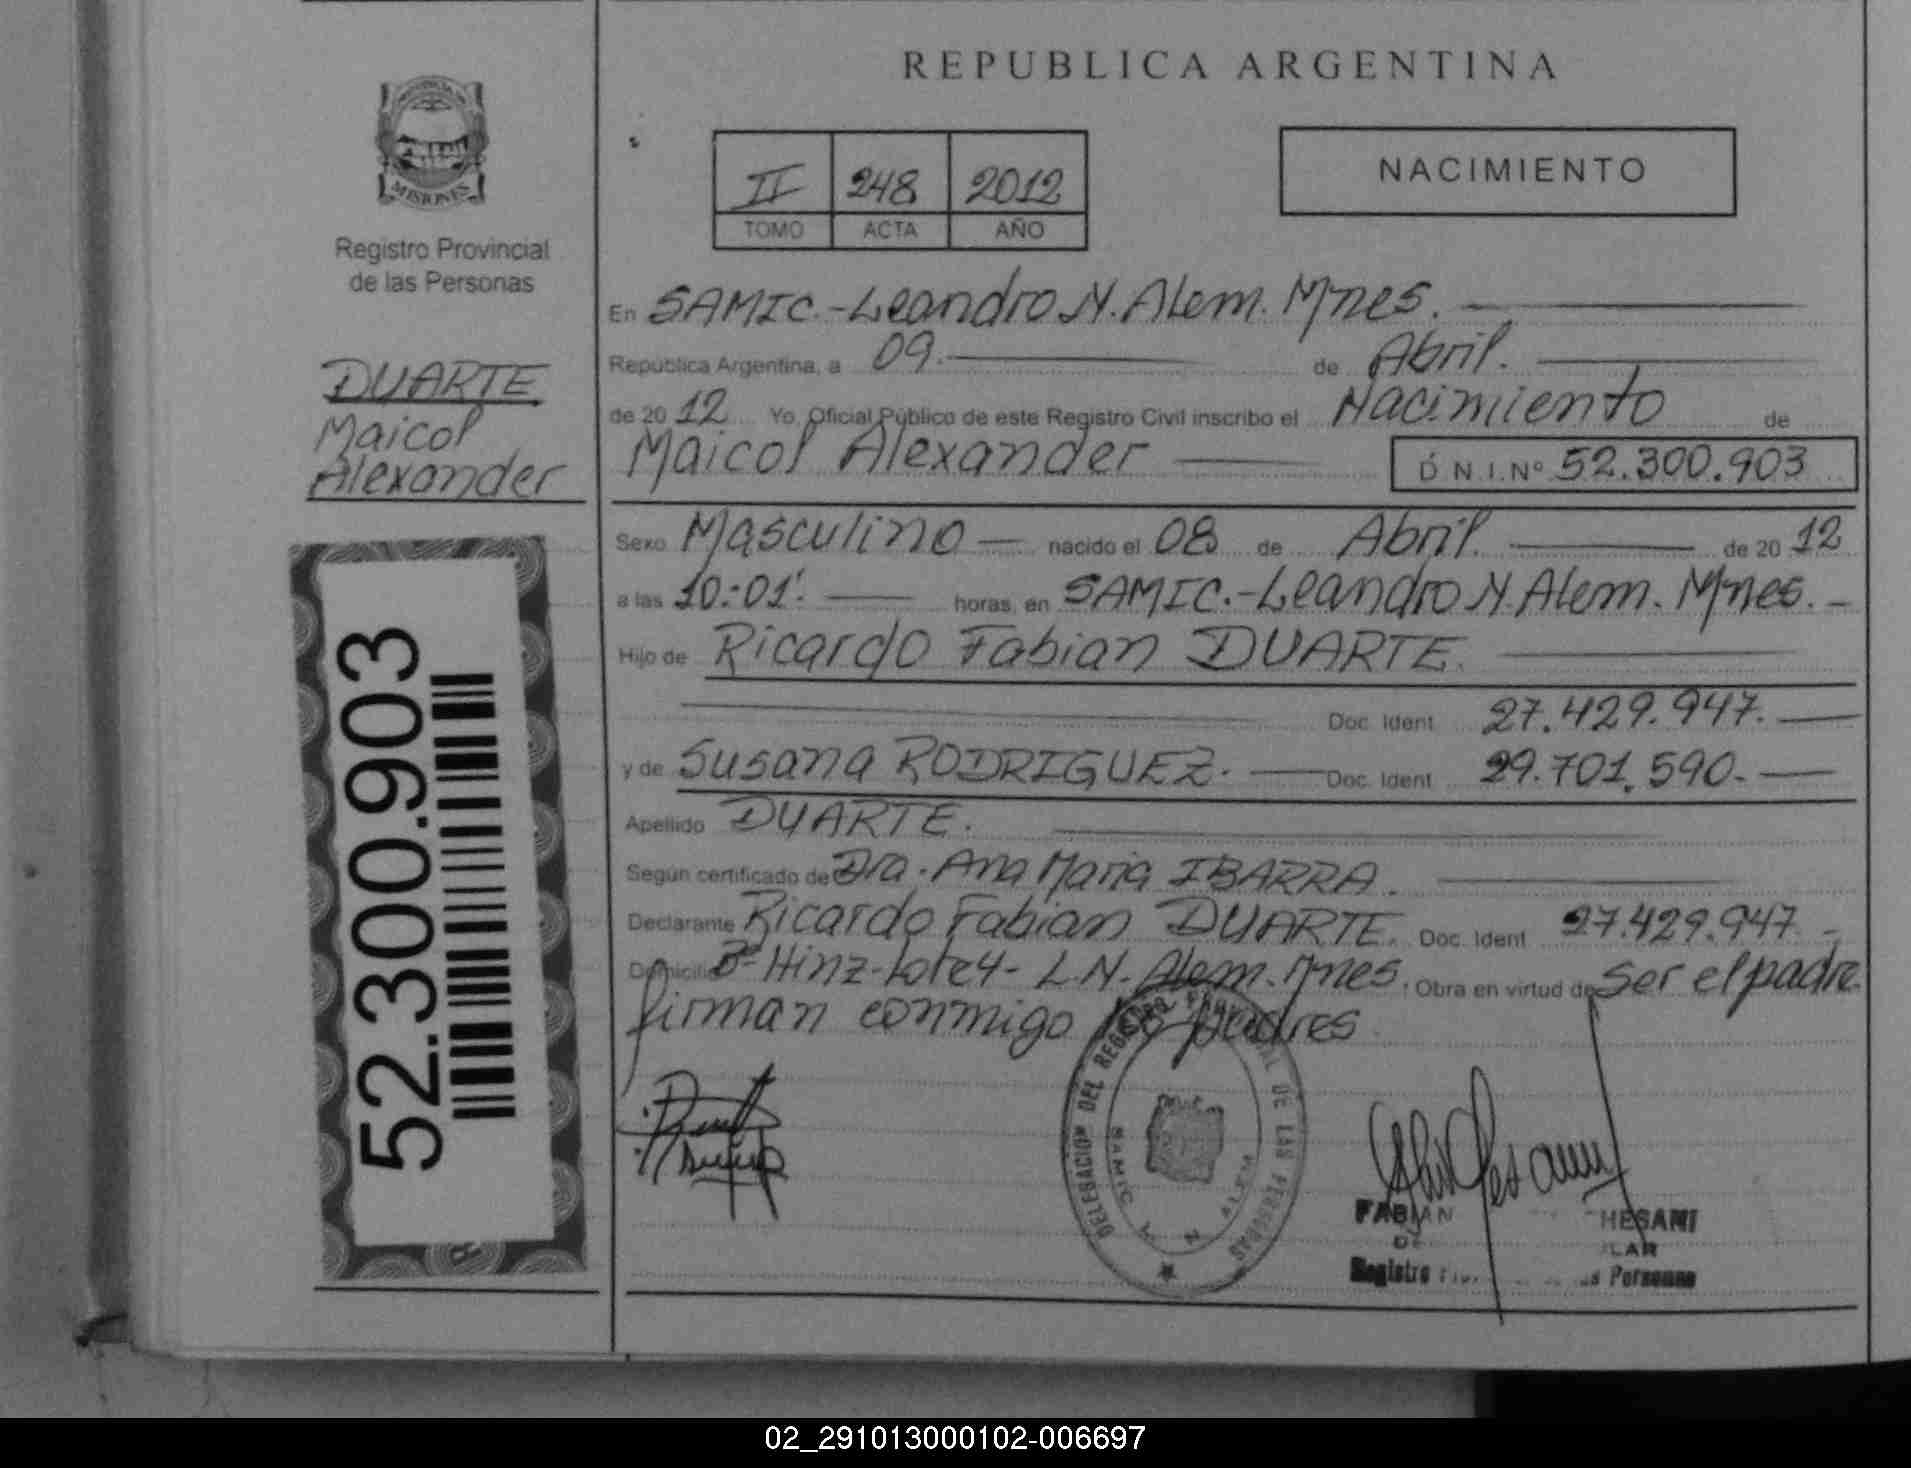 REPUBLICA ARGENTINA
PROVINCIA DE
MISIONES
Registro Provincial
de las Personas
II 248 2012
TOMO ACTA AÑO
NACIMIENTO
DUARTE
Maicol
Alexander
52.300.903
En SAMIC.-Leandro N. Alem. Mnes.
República Argentina, a 09. de Abril.
de 20 12 Yo, Oficial Público de este Registro Civil inscribo el Nacimiento de
Maicol Alexander D.N.I.Nº 52.300.903
Sexo Masculino nacido el 08 de Abril. de 20 12
a las 10:01'. horas, en SAMIC.-Leandro N. Alem. Mnes.
Hijo de Ricardo Fabian DUARTE.
Doc. Ident 27.429.947.
y de Susana RODRIGUEZ. Doc. Ident 29.701.590.
Apellido DUARTE.
Según certificado de Dra. Ana Maria IBARRA.
Declarante Ricardo Fabian DUARTE. Doc. Ident 27.429.947
Domicilio Bº Hinz-Lote 4- L.N. Alem. Mnes. Obra en virtud de Ser el padre.
firman conmigo los padres
DELEGACION DEL REGISTRO PROVINCIAL DE LAS PERSONAS
SAMIC L N ALEM
FABIAN HESANI
LAR
Registro Personas
02_291013000102-006697